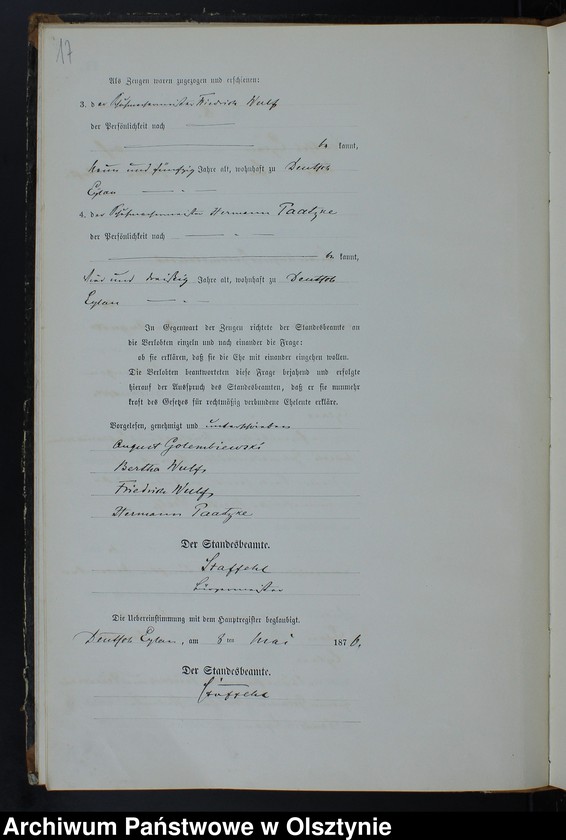 17
Als Zeugen waren zugezogen und erschienen:
3. der Schuhmachermeister Friedrich Wulf
der Persönlichkeit nach
be kannt,
neun und fünfzig Jahre alt, wohnhaft zu Deutsch
Eylau
4. der Schuhmachermeister Hermann Paatzke
der Persönlichkeit nach
be kannt,
und dreißig Jahre alt, wohnhaft zu Deutsch
Eylau
In Gegenwart der Zeugen richtete der Standesbeamte an
die Verlobten einzeln und nach einander die Frage:
ob sie erklären, daß sie die Ehe mit einander eingehen wollen.
Die Verlobten beantworteten diese Frage bejahend und erfolgte
hierauf der Ausspruch des Standesbeamten, daß er sie nunmehr
kraft des Gesetzes für rechtmäßig verbundene Eheleute erkläre.
Vorgelesen, genehmigt und unterschrieben
August Golembiewski
Bertha Wulf,
Friedrich Wulf,
Hermann Paatzke
Der Standesbeamte.
Staffehl
Bürgermeister
Die Uebereinstimmung mit dem Hauptregister beglaubigt.
Deutsch Eylau, am 8ten Mai 1876.
Der Standesbeamte.
Staffehl
Archiwum Państwowe w Olsztynie